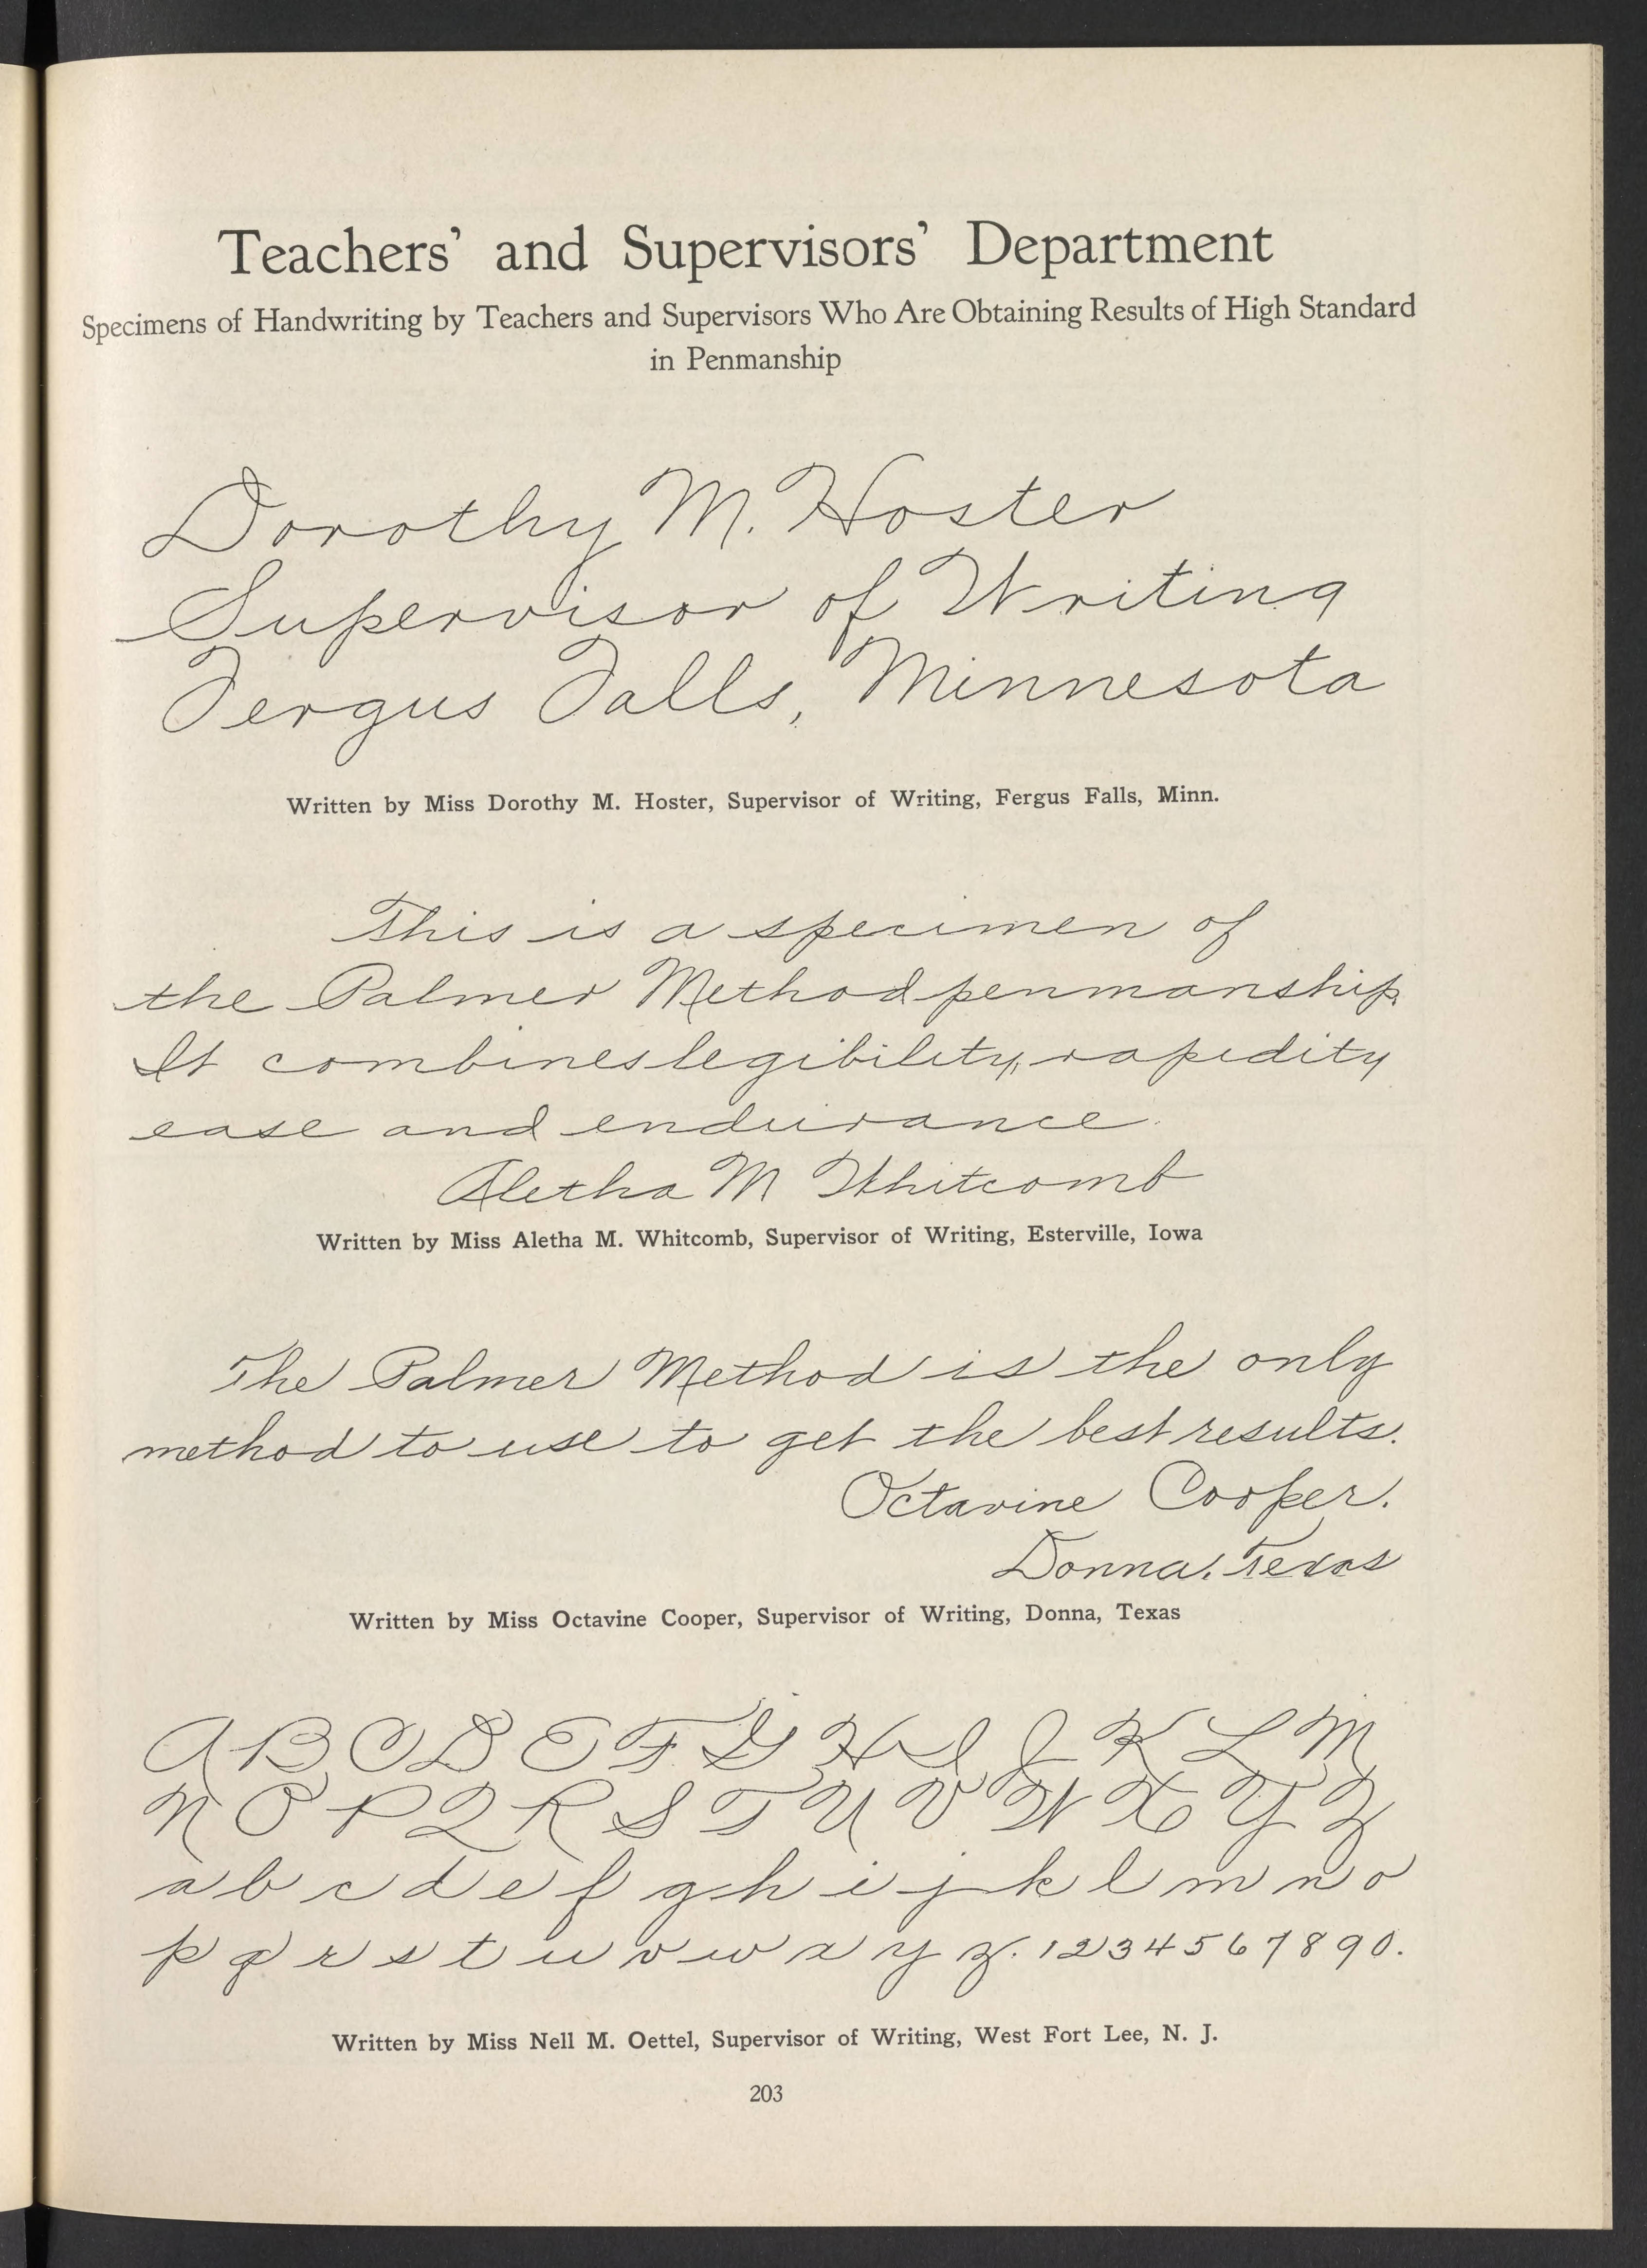 Teachers' and Supervisors' Department
Specimens of Handwriting by Teachers and Supervisors Who Are Obtaining Results of High Standard
in Penmanship
Dorothy M. Hoster
Supervisor of Writing
Fergus Falls, Minnesota
Written by Miss Dorothy M. Hoster, Supervisor of Writing, Fergus Falls, Minn.
This is a specimen of
the Palmer Method penmanship.
It combines legibility, rapidity
ease and endurance.
Aletha M Whitcomb
Written by Miss Aletha M. Whitcomb, Supervisor of Writing, Esterville, Iowa
The Palmer Method is the only
method to use to get the best results.
Octavine Cooper.
Donna, Texas
Written by Miss Octavine Cooper, Supervisor of Writing, Donna, Texas
A B C D E F G H I J K L M
N O P Q R S T U V W X Y Z
a b c d e f g h i j k l m n o
p q r s t u v w x y z. 1 2 3 4 5 6 7 8 9 0.
Written by Miss Nell M. Oettel, Supervisor of Writing, West Fort Lee, N. J.
203